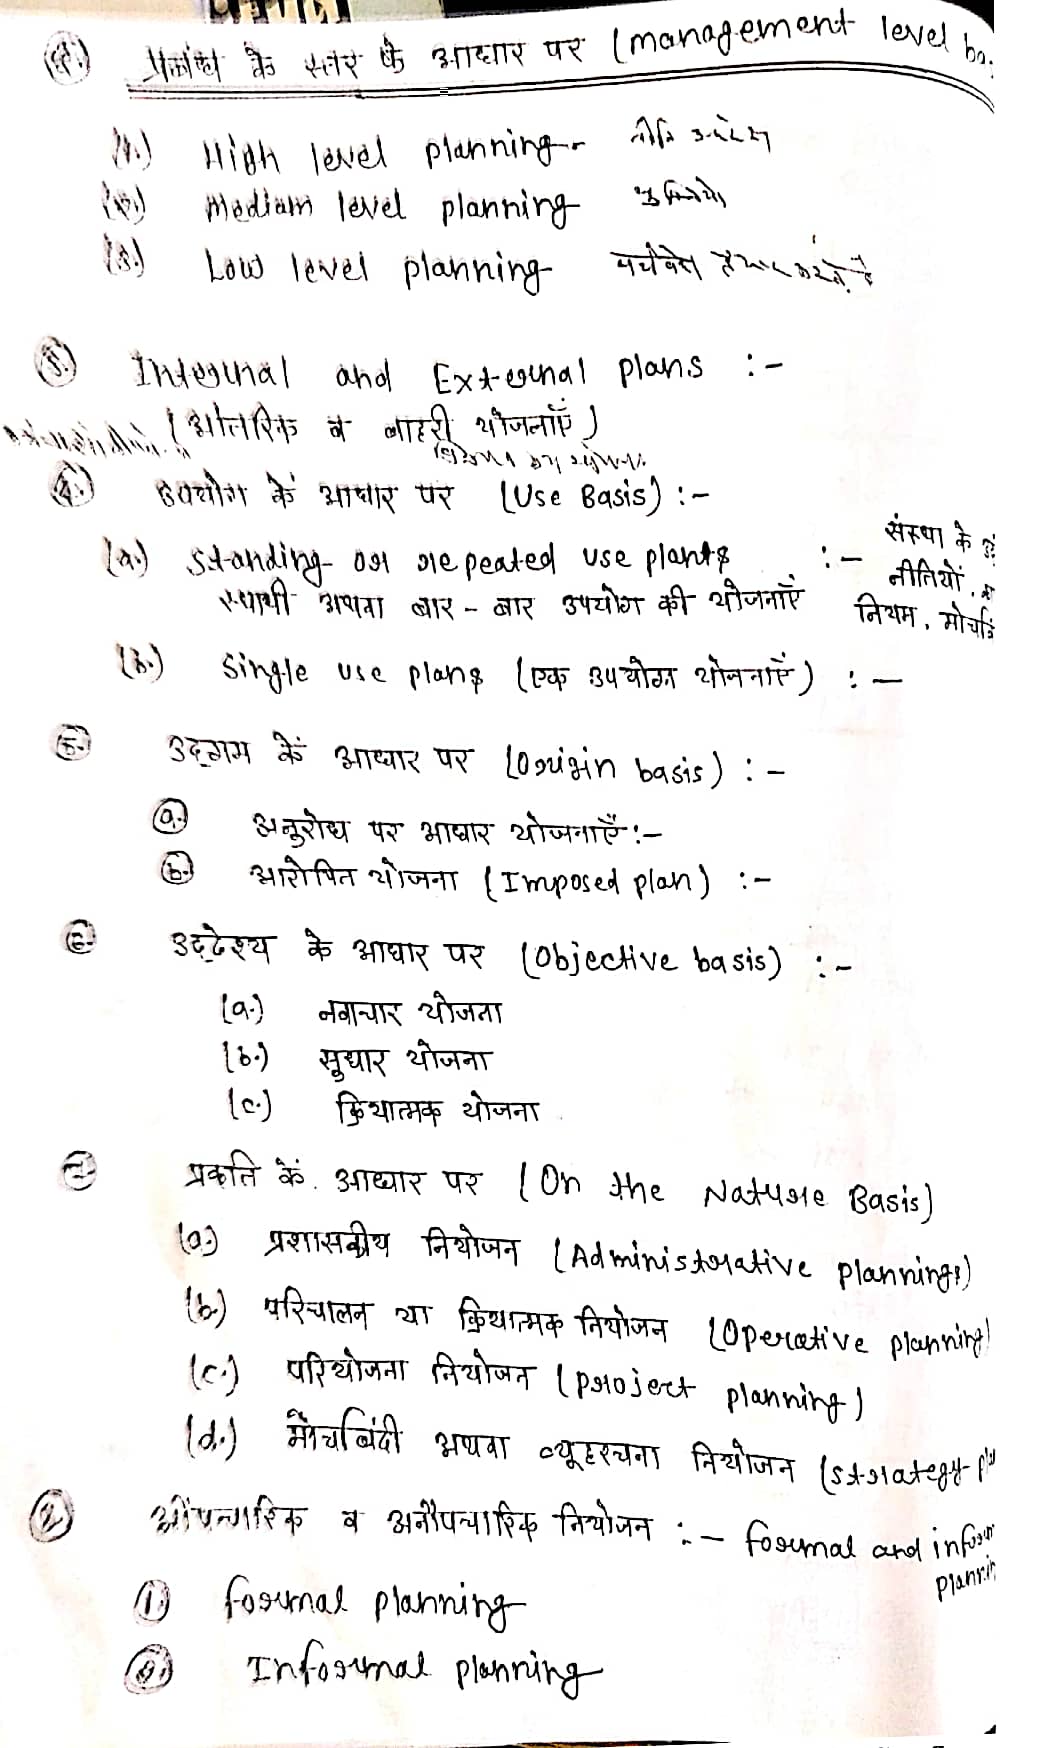 प्रबंध के स्तर के आधार पर (management level
(1.) High level planning - नीति उद्देश्य
Medium level planning
(3.) Low level planning
(5.) Internal and External plans :-
(आंतरिक व बाहरी योजनाएँ)
उपयोग कें आधार पर (Use Basis) :-
संस्था के
(a.) Standing or repeated use plants :-
नीतियों,
स्थायी अथवा बार - बार उपयोग की योजनाएँ
नियम,
(b.) Single use plans (एक उपयोग योजनाएँ) : -
उद्गम कें आधार पर (Origin basis) : -
(a.) अनुरोध पर आधार योजनाएँ :-
(b.) आरोपित योजना (Imposed plan) :-
उद्देश्य के आधार पर (Objective basis) :-
(a.) नवाचार योजना
(b.) सुधार योजना
(c.) क्रियात्मक योजना
प्रकति कें आधार पर (On the Nature Basis)
(a.) प्रशासकीय नियोजन (Administrative plannings)
(b.) परिचालन या क्रियात्मक नियोजन (Operative planning)
(c.) परियोजना नियोजन (project planning)
(d.) अथवा व्यूहरचना नियोजन (strategy
(2.) औपचारिक व अनौपचारिक नियोजन :- formal and
(1.) formal planning
Informal planning